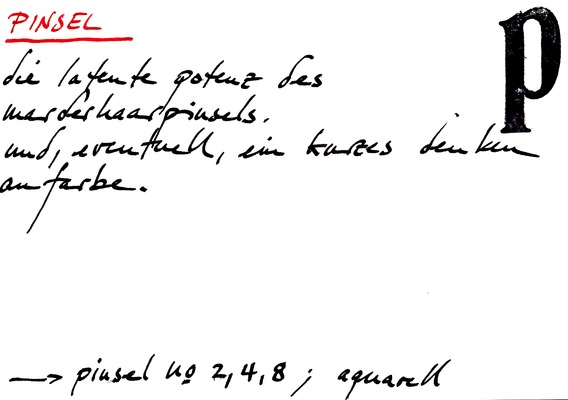 PINSEL
p
die latente potenz des
marderhaarpinsels.
und, eventuell, ein kurzes denken
an farbe.
→ pinsel no 2,4,8 ; aquarell